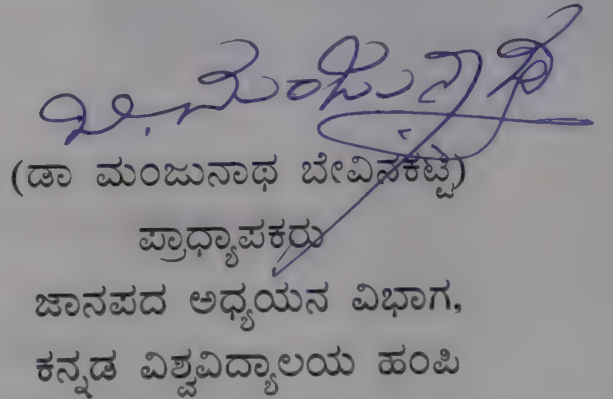 ಬಿ. ಮಂಜುನಾಥ
(ಡಾ ಮಂಜುನಾಥ ಬೇವಿನಕಟ್ಟಿ)
ಪ್ರಾಧ್ಯಾಪಕರು
ಜಾನಪದ ಅಧ್ಯಯನ ವಿಭಾಗ,
ಕನ್ನಡ ವಿಶ್ವವಿದ್ಯಾಲಯ ಹಂಪಿ